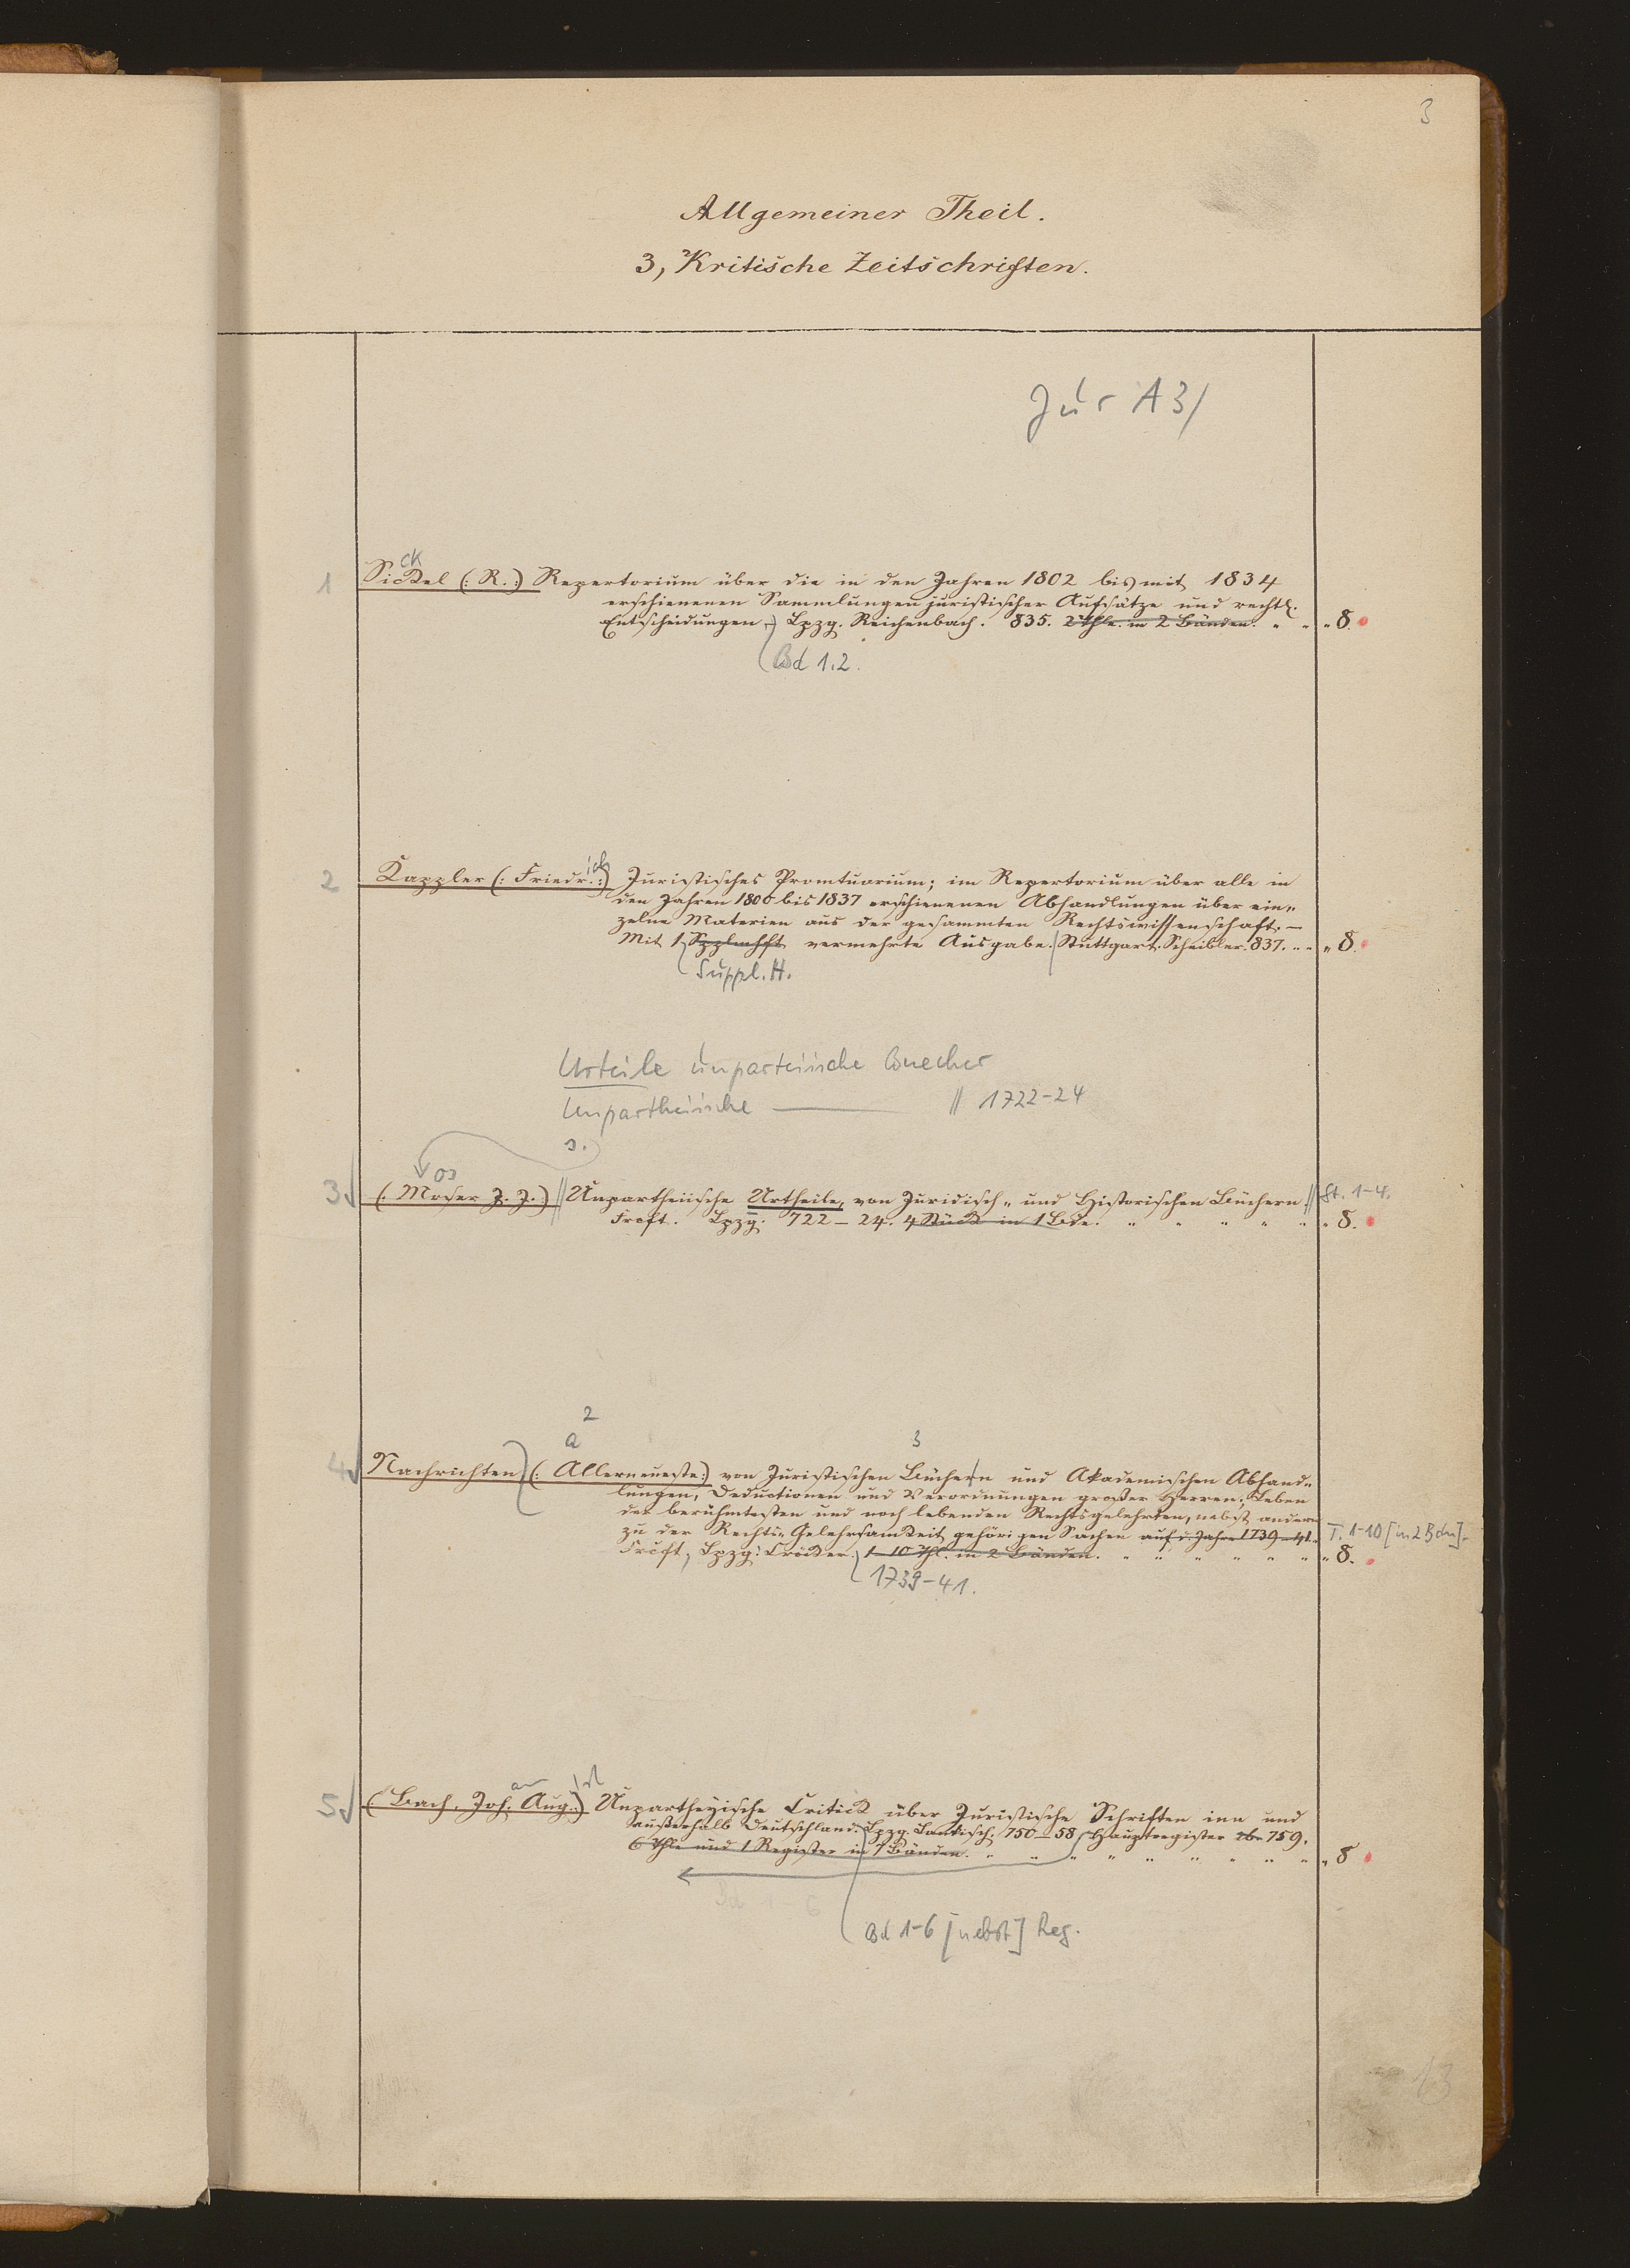 3
Allgemeiner Theil.
3, Kritische Zeitschriften.
Jur A 3/
ck
1 Sickel (: R. :) Repertorium über die in den Jahren 1802 bis mit 1834
erschienenen Sammlungen juristischer Aufsätze und rechtl.
Entscheidungen. Lpzg. Reichenbach. 835. 2 Thle. in 2 Bänden. " " " 8.
Bd 1.2.
ich
2 Kappler (: Friedr. :) Juristisches Promtuarium; im Repertorium über alle in
den Jahren 1800 bis 1837 erschienenen Abhandlungen über ein-
zelne Materien aus der gesammten Rechtswissenschaft. —
Mit 1 Spplmhft vermehrte Ausgabe. Stuttgart. Scheibler. 837. " " " 8.
Suppl. H.
Urteile unparteiische Buecher
Unpartheiische — // 1722-24
s.
os
3 (. Moser J. J. :) // Unpartheiische Urtheile, von Juridisch- und Historischen Büchern // St. 1-4.
Frcft. Lpzg. 722 — 24. 4 Stück in 1 Bde. " " " " " " 8.
2
a 3
4 Nachrichten (: Allerneueste :) von Juristischen Büchern und Akademischen Abhand-
lungen, Deductionen und Verordnungen großer Herren; Leben
der berühmtesten und noch lebenden Rechtsgelehrten, nebst andern
zu der Rechts-Gelehrsamkeit gehörigen Sachen auf d. Jahre 1739-41. T. 1-10 [in 2 Bdn].
Frcft, Lpzg. Cröker. 1-10 Thl. in 2 Bänden. " " " " " " " 8.
1739-41.
5 (: Bach, Joh. Aug. :) Unpartheyische Critick über Juristische Schriften inn und
außerhalb Deutschland. Lpzg. Landisch. 750-58 Hauptregister 759.
6 Thle und 1 Register in 7 Bänden. " " " " " " " " " " 8
Bd 1-6
Bd 1-6 [nebst] Reg.
13